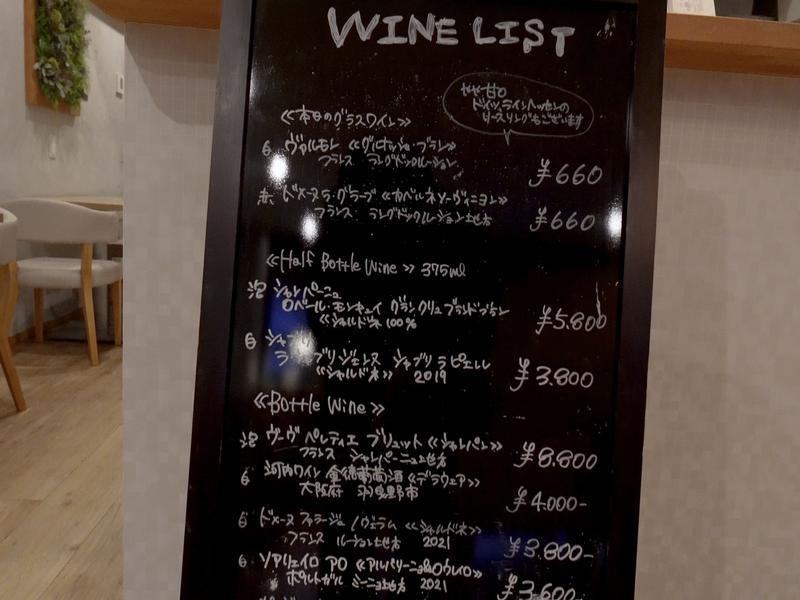 WINE LIST
やや甘口
ドイツ、ラインヘッセンの
リースリングもございます
≪本日のグラスワイン≫
白 ヴァルモン ≪グルナッシュ・ブラン≫
フランス ラングドックルーション
¥660
赤 ドメーヌ・ラ・グラーブ ≪カベルネソーヴィニヨン≫
フランス ラングドックルーション地方
¥660
≪Half Bottle Wine≫ 375ml
泡 シャンパーニュ
ロベール・モンキュイ グラン クリュ ブランドブラン
≪シャルドネ 100%
¥5.800
白 シャブリ
ラ シャブリジェンヌ シャブリ ラ ピエレレ
≪シャルドネ≫ 2019
¥3.800
≪Bottle Wine≫
泡 ヴーヴ ペルティエ ブリュット ≪シャンパン≫
フランス シャンパーニュ地方
¥8.800
白 河内ワイン 金徳葡萄酒 ≪デラウェア≫
大阪府 羽曳野市
¥4.000-
白 ドメーヌ ファラージュ / ヴェラム ≪シャルドネ≫
フランス ルーション地方 2021
¥3.800-
白 ソアリェイロ アロ ≪アルバリーニョ&ロウレイロ≫
ポルトガル ミーニョ地方 2021
¥3.600